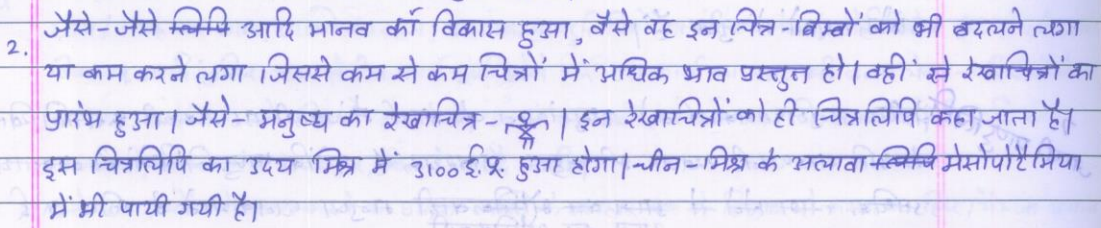 2. जैसे-जैसे लिपि आदि मानव का विकास हुआ, वैसे वह इन चित्र-बिम्बों को भी बदलने लगा
या कम करने लगा जिससे कम से कम चित्रों में अधिक भाव प्रस्तुत हो। वहीं से रेखाचित्रों का
प्रारंभ हुआ। जैसे- मनुष्य का रेखाचित्र- । इन रेखाचित्रों को ही चित्रलिपि कहा जाता है।
इस चित्रलिपि का उदय मिश्र में 3100 ई.पू. हुआ होगा। चीन-मिश्र के अलावा लिपि मेसोपोटेमिया
में भी पायी गयी है।